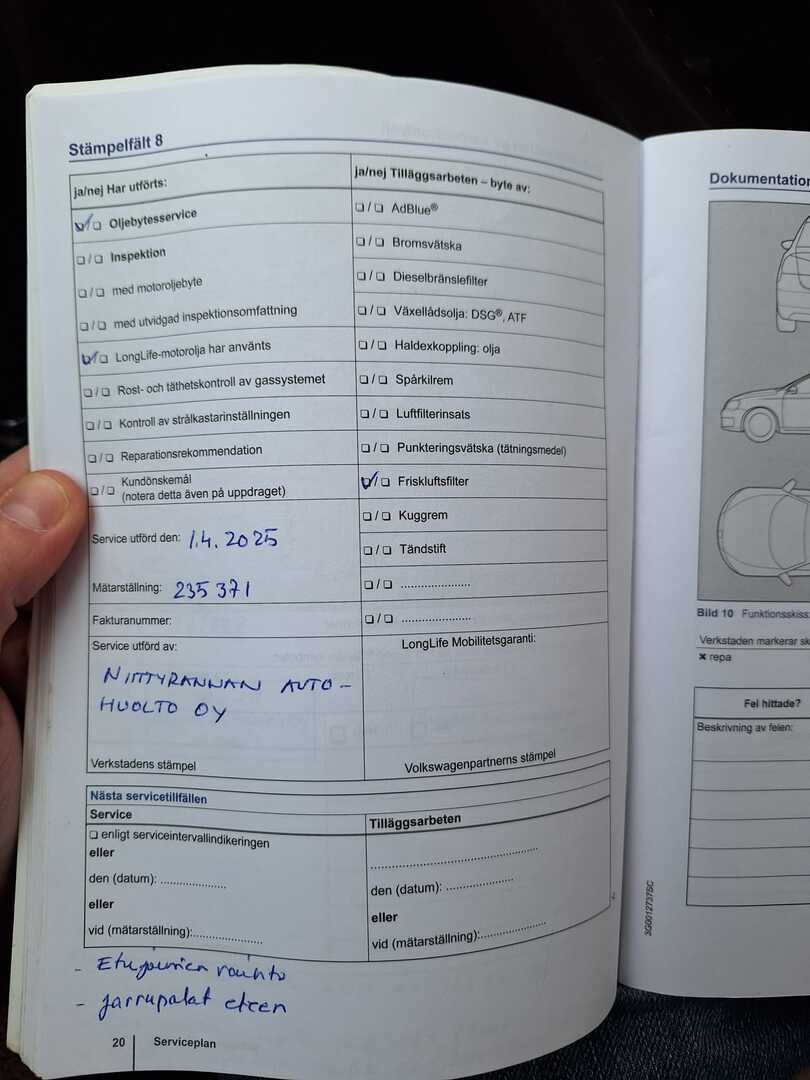 Stämpelfält 8
ja/nej Har utförts:
☑/❏ Oljebytesservice
❏/❏ Inspektion
❏/❏ med motoroljebyte
❏/❏ med utvidgad inspektionsomfattning
☑/❏ LongLife-motorolja har använts
❏/❏ Rost- och täthetskontroll av gassystemet
❏/❏ Kontroll av strålkastarinställningen
❏/❏ Reparationsrekommendation
❏/❏ Kundönskemål
(notera detta även på uppdraget)
Service utförd den: 1.4.2025
Mätarställning: 235 371
Fakturanummer:
Service utförd av:
NIITTYRANNAN AUTO-
HUOLTO OY
Verkstadens stämpel
ja/nej Tilläggsarbeten – byte av:
❏/❏ AdBlue®
❏/❏ Bromsvätska
❏/❏ Dieselbränslefilter
❏/❏ Växellådsolja: DSG®, ATF
❏/❏ Haldexkoppling: olja
❏/❏ Spårkilrem
❏/❏ Luftfilterinsats
❏/❏ Punkteringsvätska (tätningsmedel)
☑/❏ Friskluftsfilter
❏/❏ Kuggrem
❏/❏ Tändstift
❏/❏ ......................
❏/❏ ......................
LongLife Mobilitetsgaranti:
Volkswagenpartnerns stämpel
Nästa servicetillfällen
Service
❏ enligt serviceintervallindikeringen
eller
den (datum): .....................
eller
vid (mätarställning):......................
Tilläggsarbeten
.....................................................
den (datum): .....................
eller
vid (mätarställning):.....................
- Etujousien vaihto
- jarrupalat eteen
20 Serviceplan
Dokumentation
Bild 10 Funktionsskiss:
Verkstaden markerar
✖ repa
Fel hittade?
Beskrivning av felen:
3G0012737SC